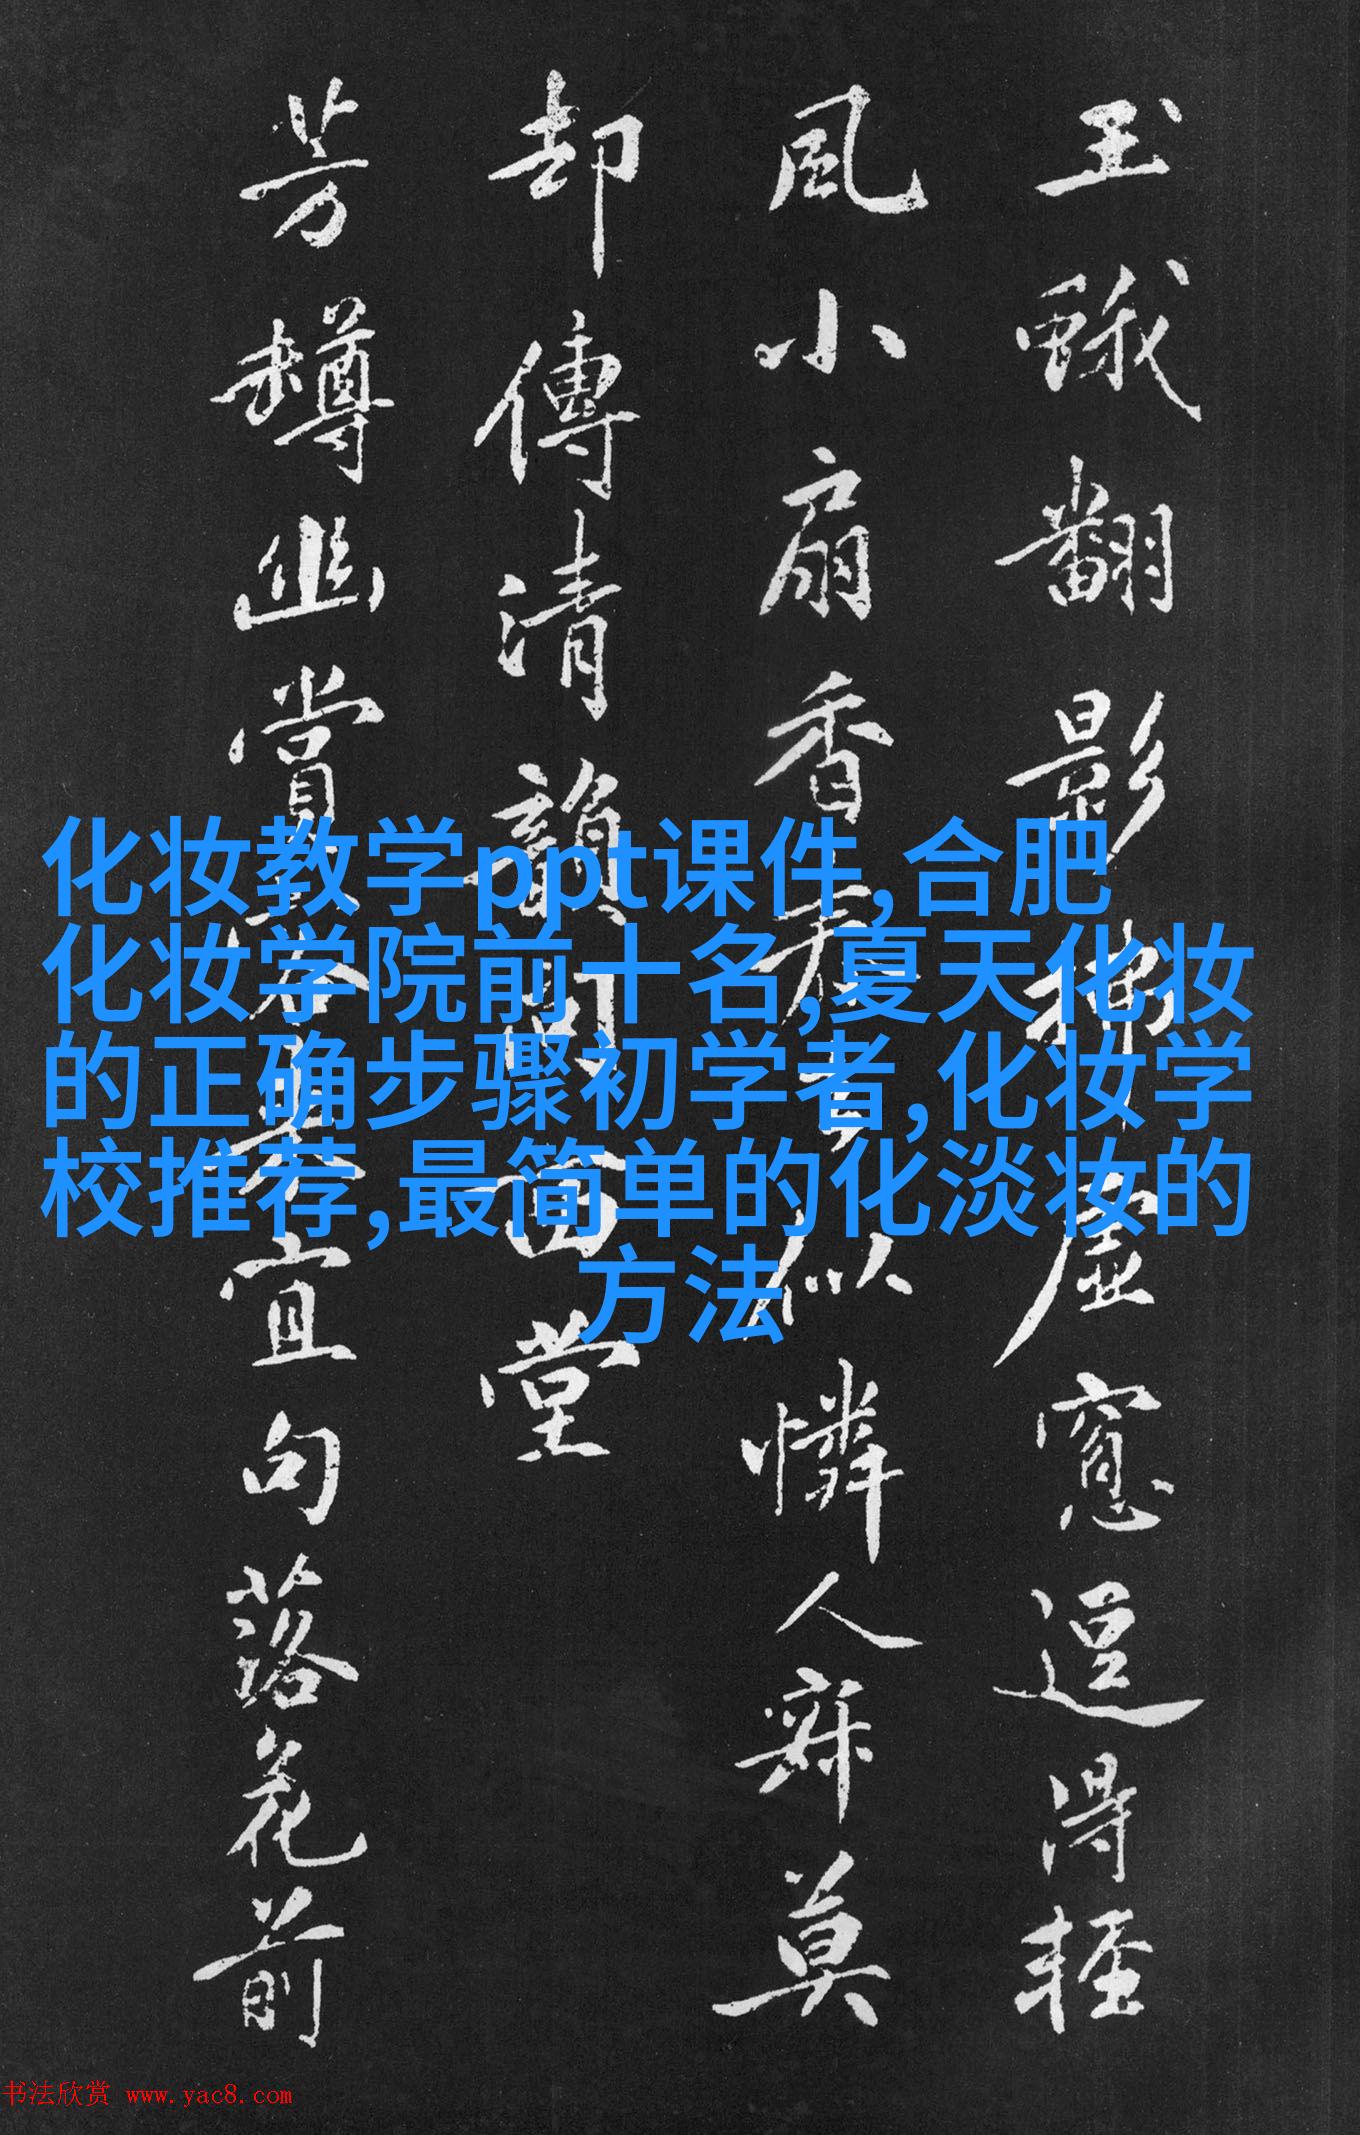 玉蛾翻影拂虛窻逗得輕
風小扇香似憐人寐莫
却傳清韻西堂
芳罇幽賞宜句落花前
化妆教学ppt课件,合肥
化妆学院前十名,夏天化妆
的正确步骤初学者,化妆学
校推荐,最简单的化淡妆的
方法
书法欣赏 www.yac8.com